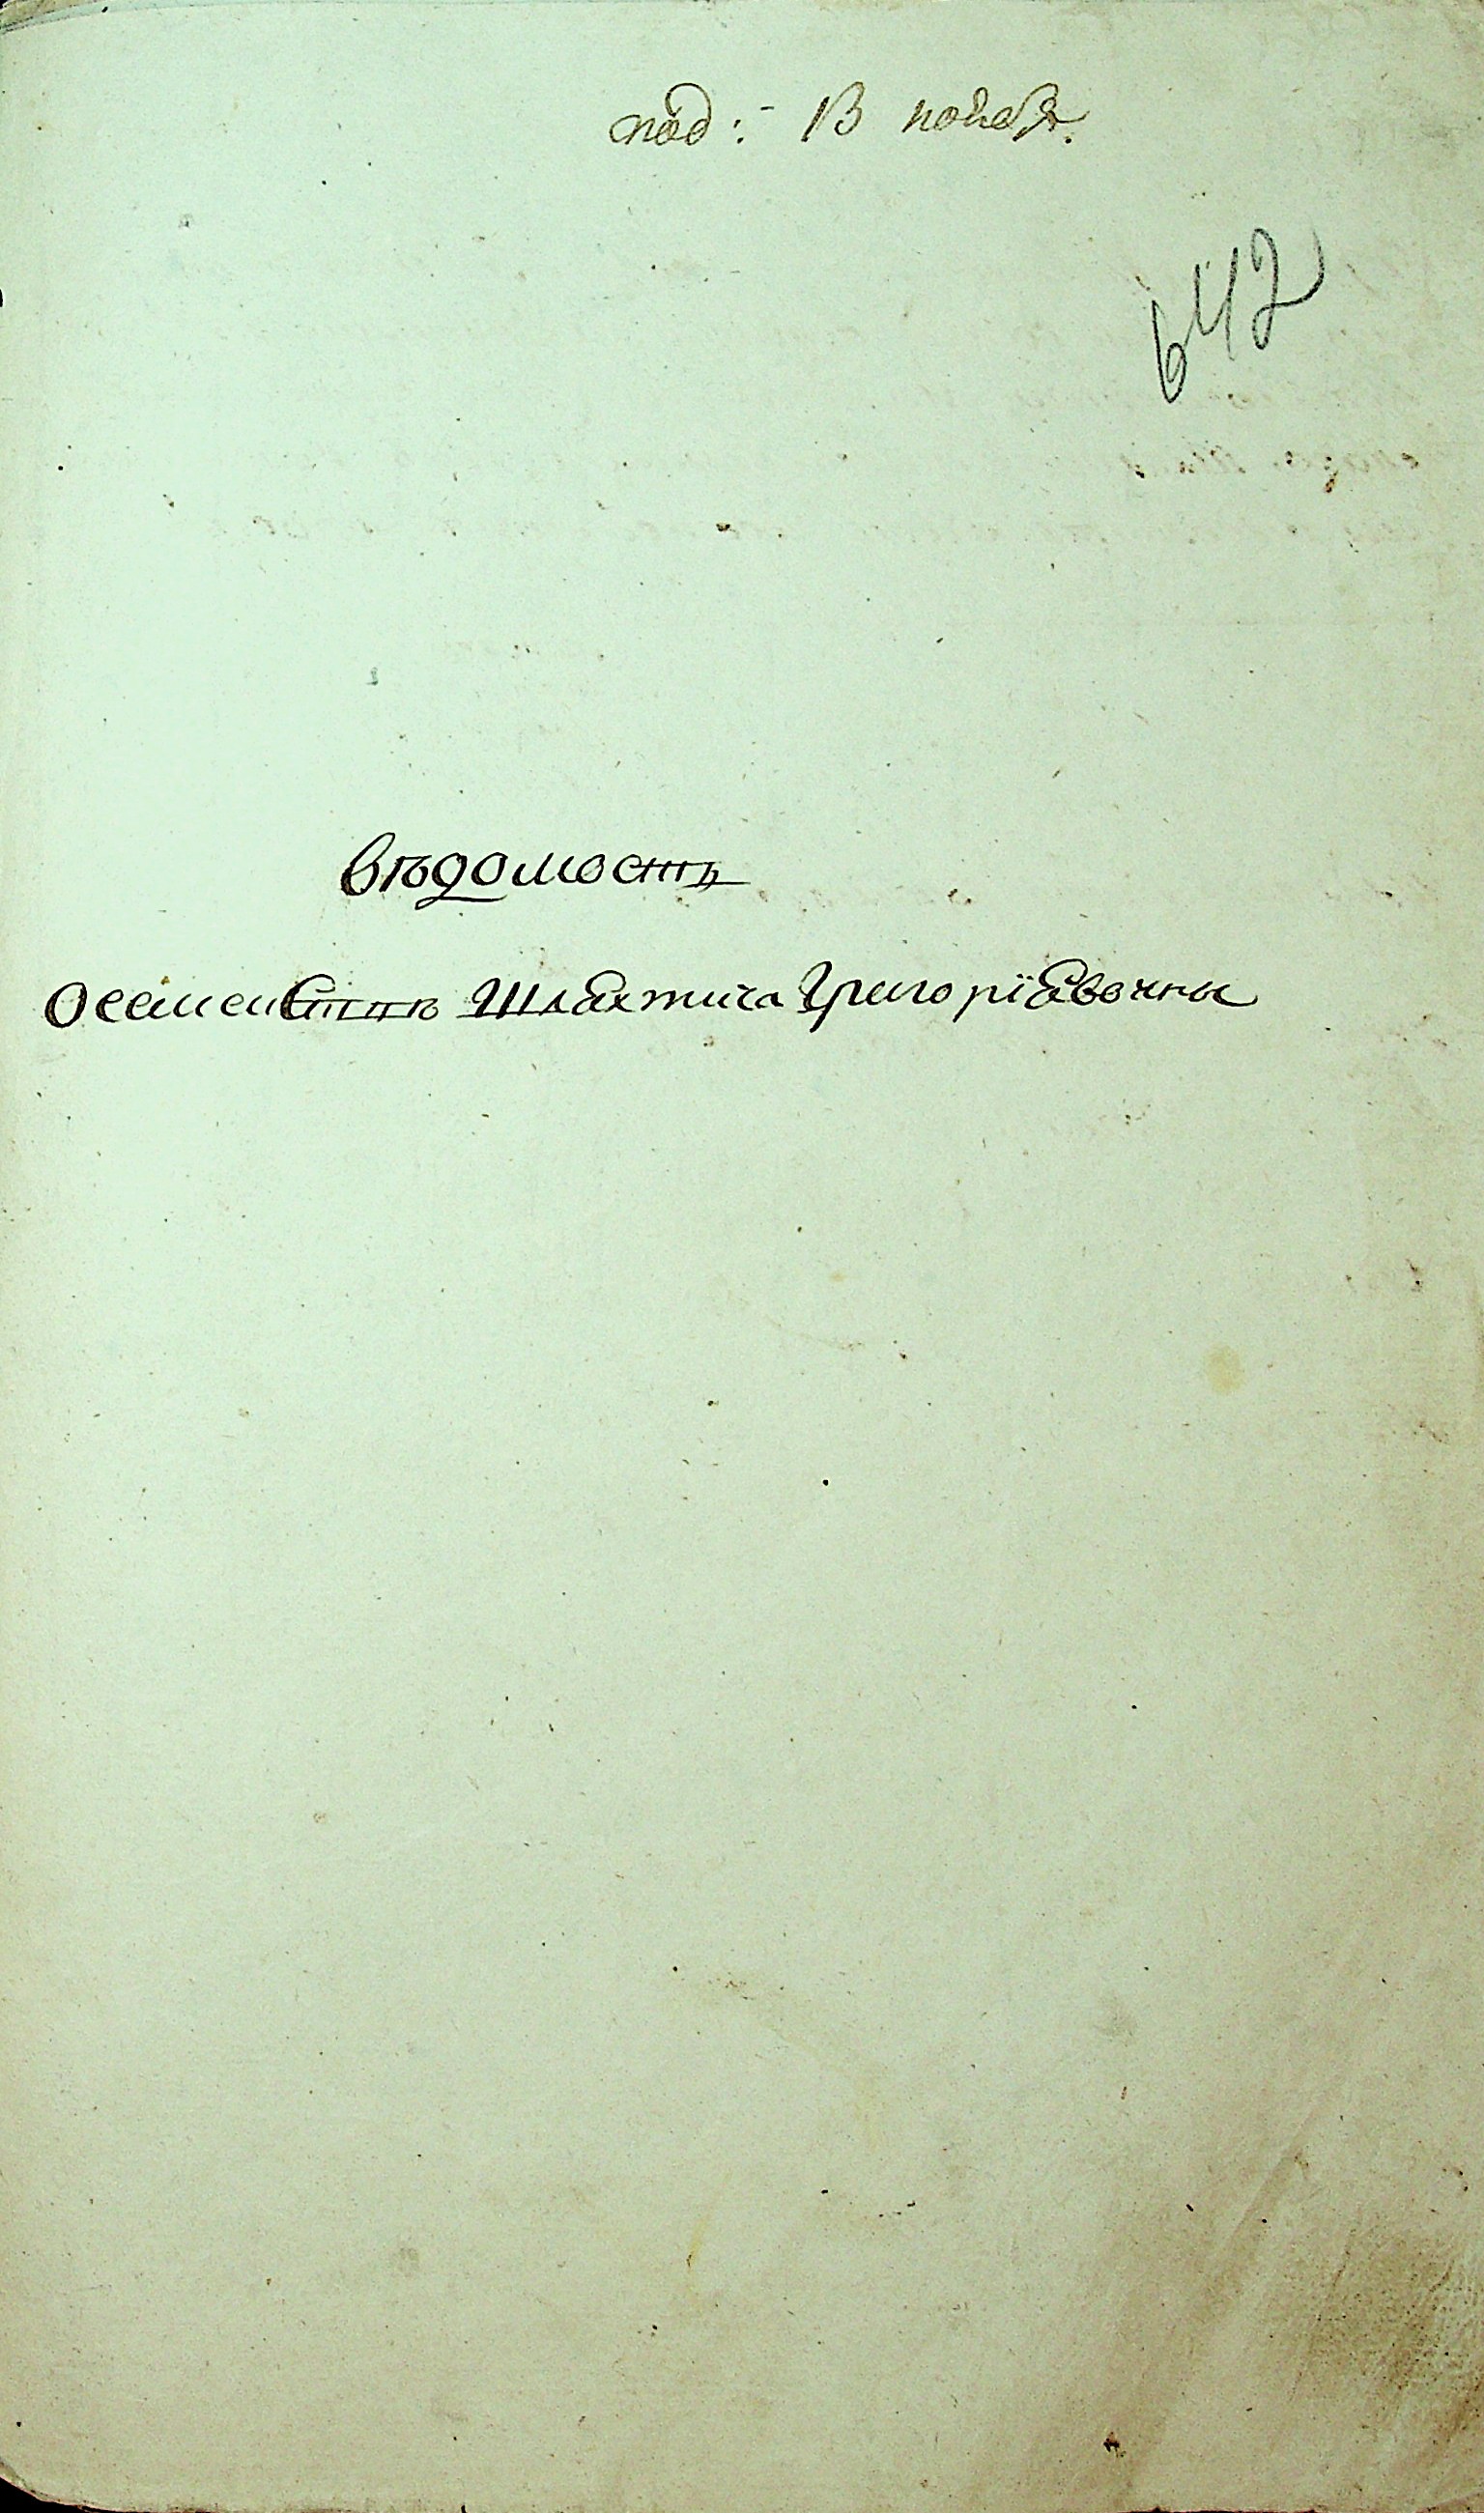 под: 13 ноября.
642
вѣдомость
о семействѣ Шляхтича Григоріевочны